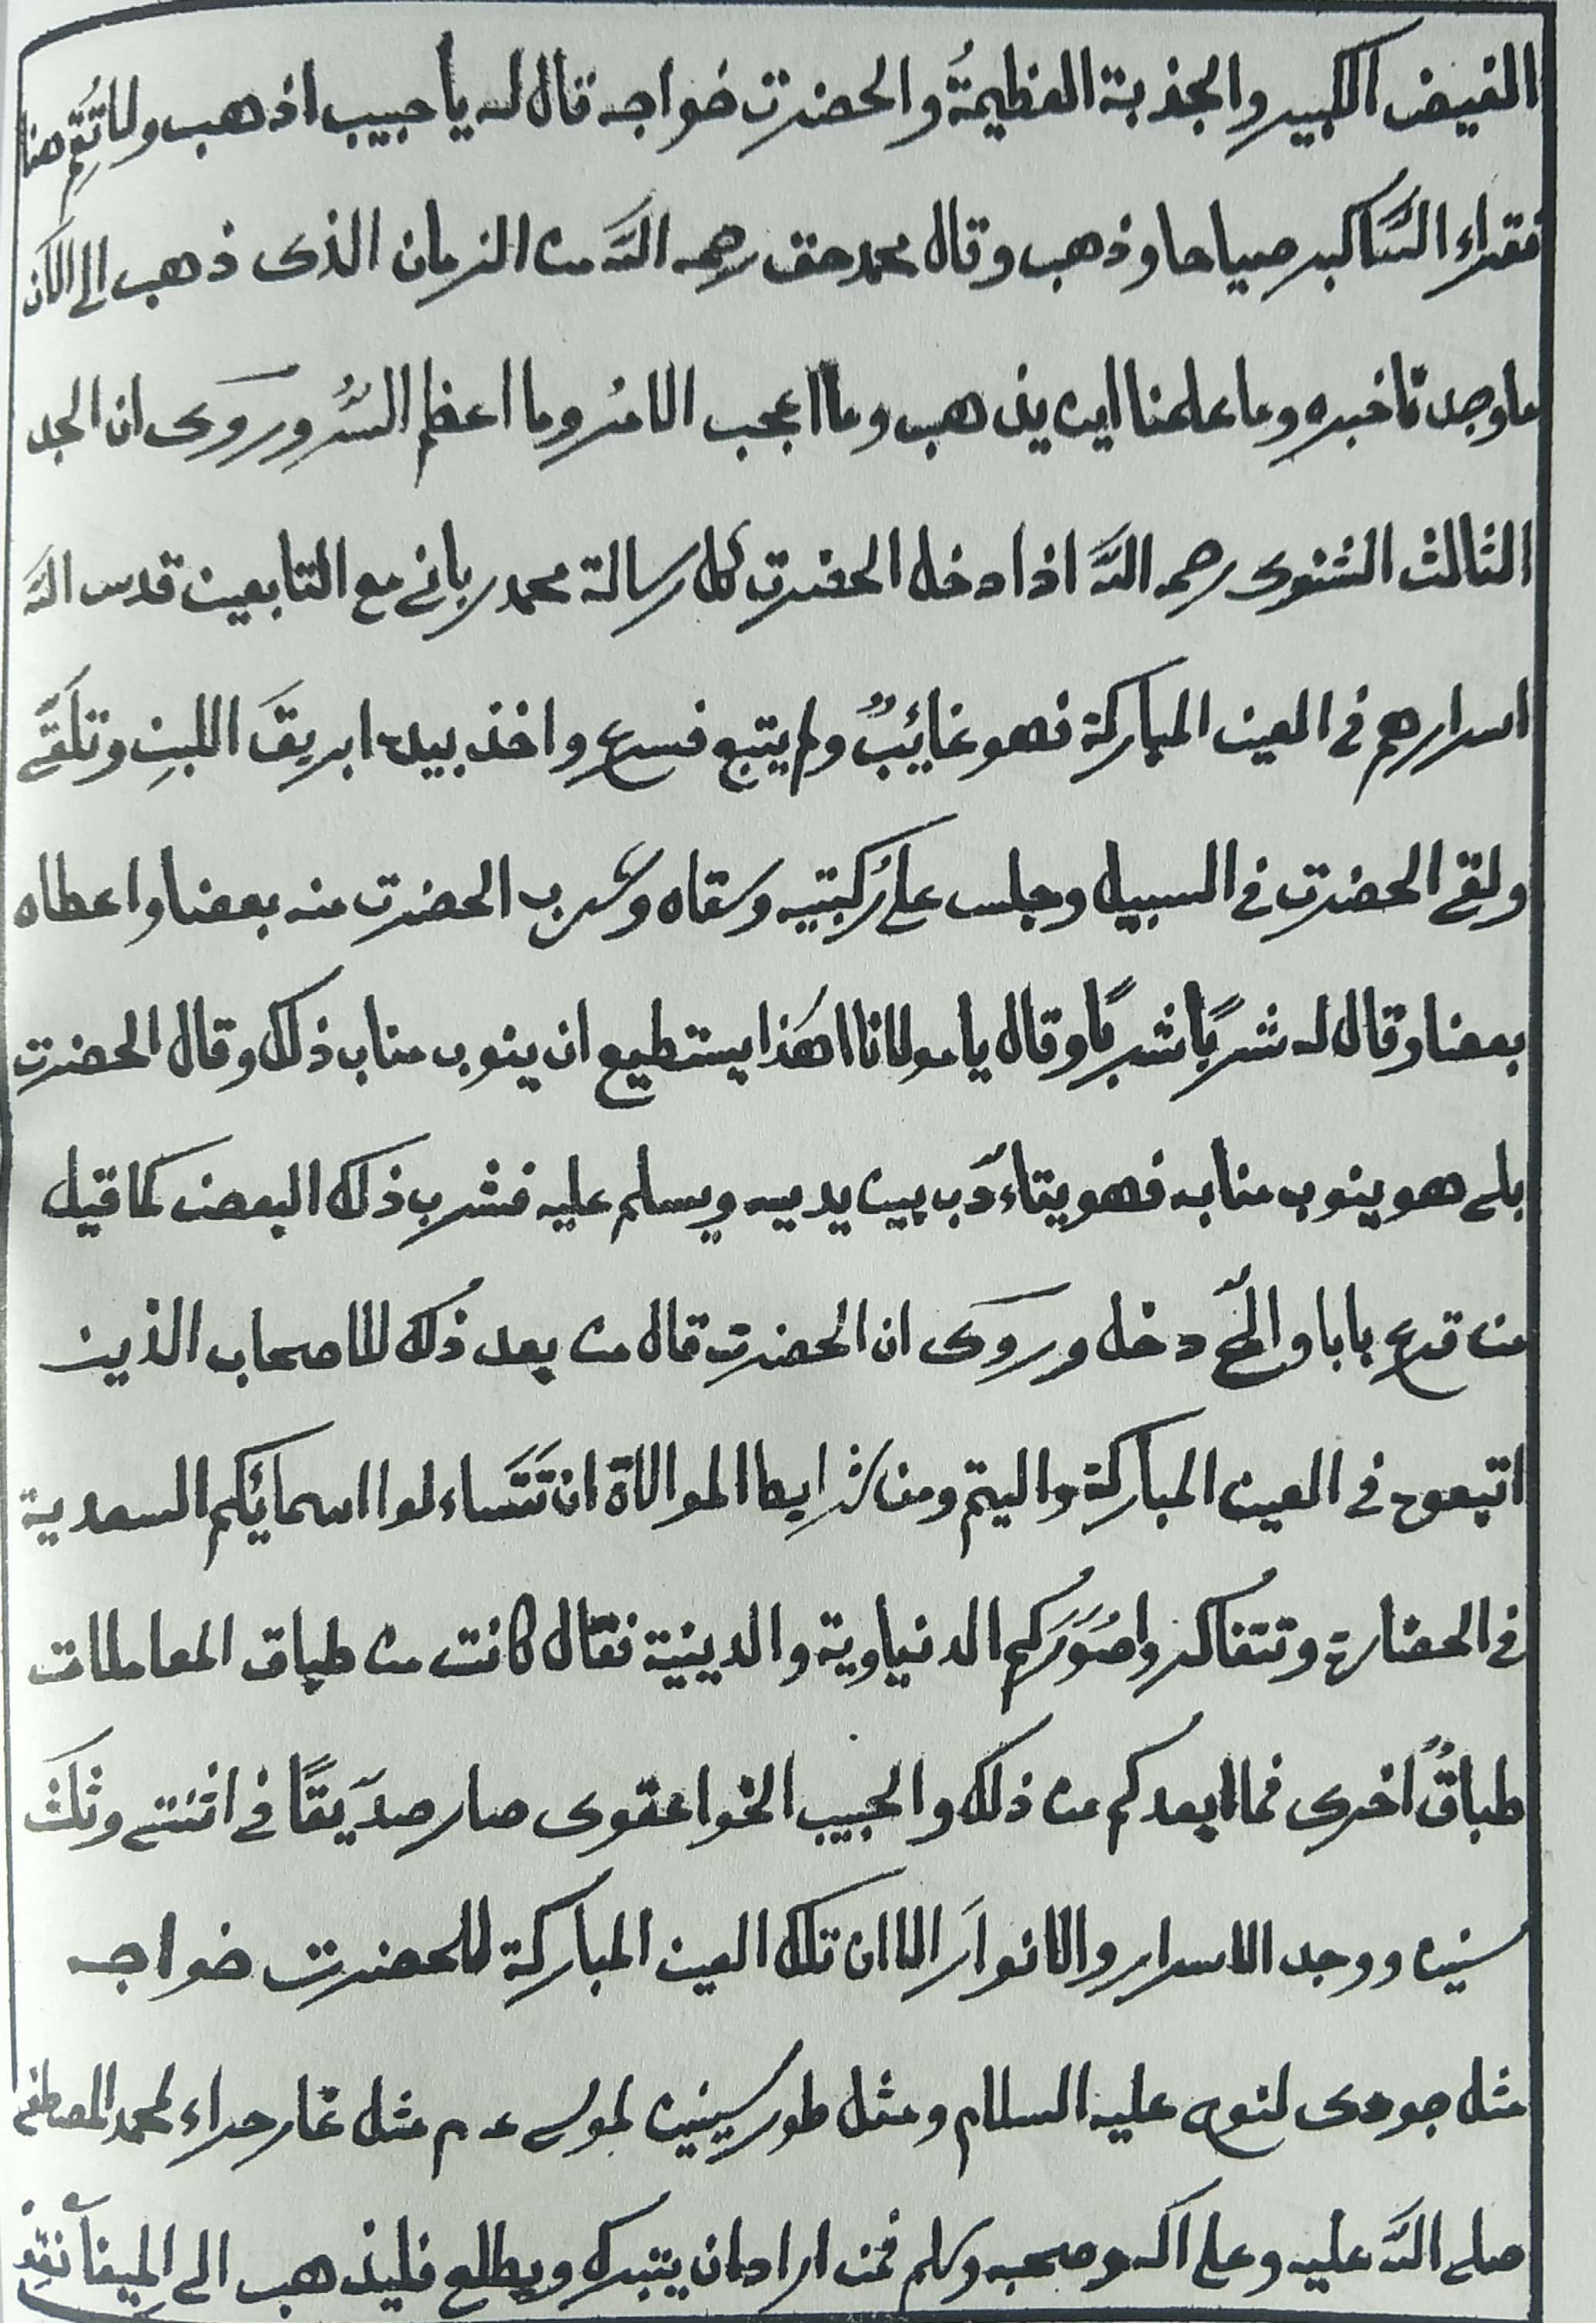 الفيض الكبير والجذبة العظيمةُ والحضرت خواجه قال له يا حبيب اذهب ولا تُقِمْ هنا
فقراء الله اكبر صياحا وذهب وقال محمد حق رحمه الله من الزمان الذى ذهب الى الآن
ما وجدنا خبره وما علمنا اين يذهب وما اعجب الامرُ وما اعظم السُّرور روَى ان الجد
الثالث الشنوى رحمه الله اذا دخل الحضرت كل رسالة محمد ربانى مع التابعين قدس الله
اسرارهم فى العين المباركة فهو غائِبٌ ولم يتبع فسرع واخذ بيده ابريقَ اللبنِ وتلَقَّى
ولقى الحضرت فى السبيل وجلس على رُكبتيه وسقاه وشرب الحضرت منه بعضا واعطاه
بعضا وقال له شربًا شربًا وقال يا مولانا اهَذا يستطيع ان ينوب مناب ذلك وقال الحضرت
بلى هو ينوب منابه فهو يتاءدّب بين يديه ويسلم عليه فشرب ذلك البعض كما قيل
من قرع بابا والحّ دخل وروَى ان الحضرت قال من بعد ذلك للاصحاب الذين
اتبعوه فى العين المباركة واليتم ومن شرايط الموالاة ان تَتَساءلوا اسمائِكم السعدية
فى الحضارة وتتفاكروا صُوَرَكم الدنياوية والدينية فقال كانت من طباق المعاملات
طباقٌ اخرى فما ابعدكم من ذلك والحبيب الخواعقوى صار صدّيقًا فى اثنتى وثلث
سنين ووجد الاسرار والانوارَ الا ان تلك العين المباركة للحضرت خواجه
مثل جودى لنوح عليه السلام ومثل طور سينين لموسى ع م مثل غار حراء لمحمد المصطفى
صلى الله عليه وعلى اله وصحبه وسلم فمن اراد ان يتبرك ويطلع فليذهب الى